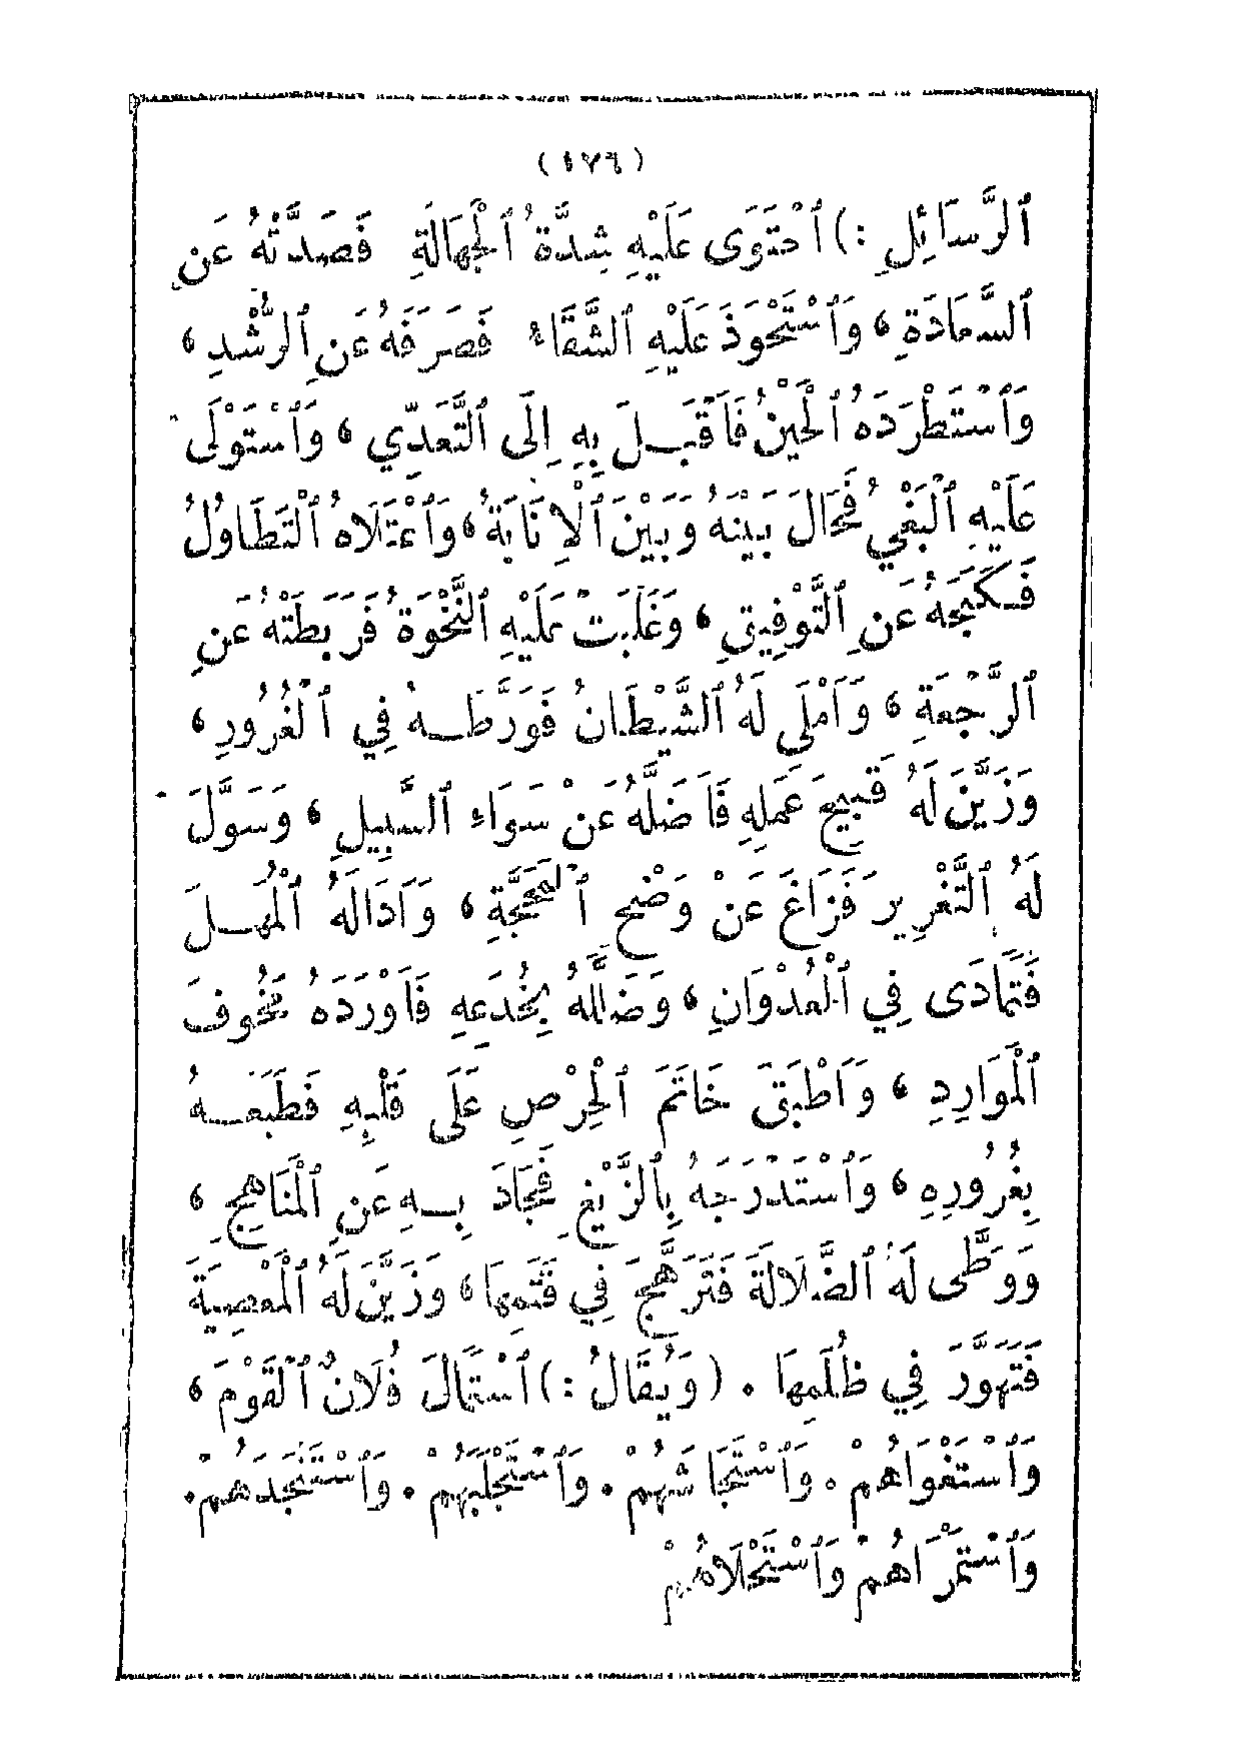 (١٧٦)
ٱلرَّسَائِلِ:) ٱحْتَوَى عَلَيْهِ شِدَّةُ ٱلْجَهَالَةِ فَصَدَّتْهُ عَنِ
ٱلسَّعَادَةِ، وَٱسْتَحْوَذَ عَلَيْهِ ٱلشَّقَاءُ فَصَرَفَهُ عَنِ ٱلرُّشْدِ،
وَٱسْتَطْرَدَهُ ٱلْحَيْنُ فَاَقْبَلَ بِهِ اِلَى ٱلتَّعَدِّي، وَٱسْتَوْلَى
عَلَيْهِ ٱلْبَغْيُ فَحَالَ بَيْنَهُ وَبَيْنَ ٱلْاِنَابَةِ، وَٱعْتَلَاهُ ٱلْتَطَاوُلُ
فَكَبَحَهُ عَنِ ٱلتَّوْفِيقِ، وَغَلَبَتْ عَلَيْهِ ٱلنَّخْوَةُ فَرَبَطَتْهُ عَنِ
ٱلرَّجْعَةِ، وَاَمْلَى لَهُ ٱلشَّيْطَانُ فَوَرَّطَهُ فِي ٱلْغُرُورِ،
وَزَيَّنَ لَهُ قَبِيحَ عَمَلِهِ فَاَضَلَّهُ عَنْ سَوَاءِ ٱلسَّبِيلِ، وَسَوَّلَ
لَهُ ٱلتَّغْرِيرَ فَزَاغَ عَنْ وَضْحِ ٱلْمَحَجَّةِ، وَاَدَالَهُ ٱلْمُهْلَ
فَتَمَادَى فِي ٱلْعُدْوَانِ، وَضَلَّلَهُ بِخُدَعِهِ فَاَوْرَدَهُ مَخُوفَ
ٱلْمَوَارِدِ، وَاَطْبَقَ خَاتَمَ ٱلْحِرْصِ عَلَى قَلْبِهِ فَطَبَعَهُ
بِغُرُورِهِ، وَٱسْتَدْرَجَهُ بِٱلزَّيْغِ فَحَادَ بِهِ عَنِ ٱلْمَنَاهِجِ،
وَوَطَّى لَهُ ٱلضَّلَالَةَ فَتَرَهَّجَ فِي قَتَمِهَا، وَزَيَّنَ لَهُ ٱلْمَعْصِيَةَ
فَتَهَوَّرَ فِي ظُلَمِهَا. (وَيُقَالُ:) ٱسْتَمَالَ فُلَانٌ ٱلْقَوْمَ،
وَٱسْتَغْوَاهُمْ. وَٱسْتَجَاشَهُمْ. وَٱسْتَجْلَبَهُمْ. وَٱسْتَنْجَدَهُمْ.
وَٱسْتَمْرَاَهُمْ وَٱسْتَحْلَاهُمْ